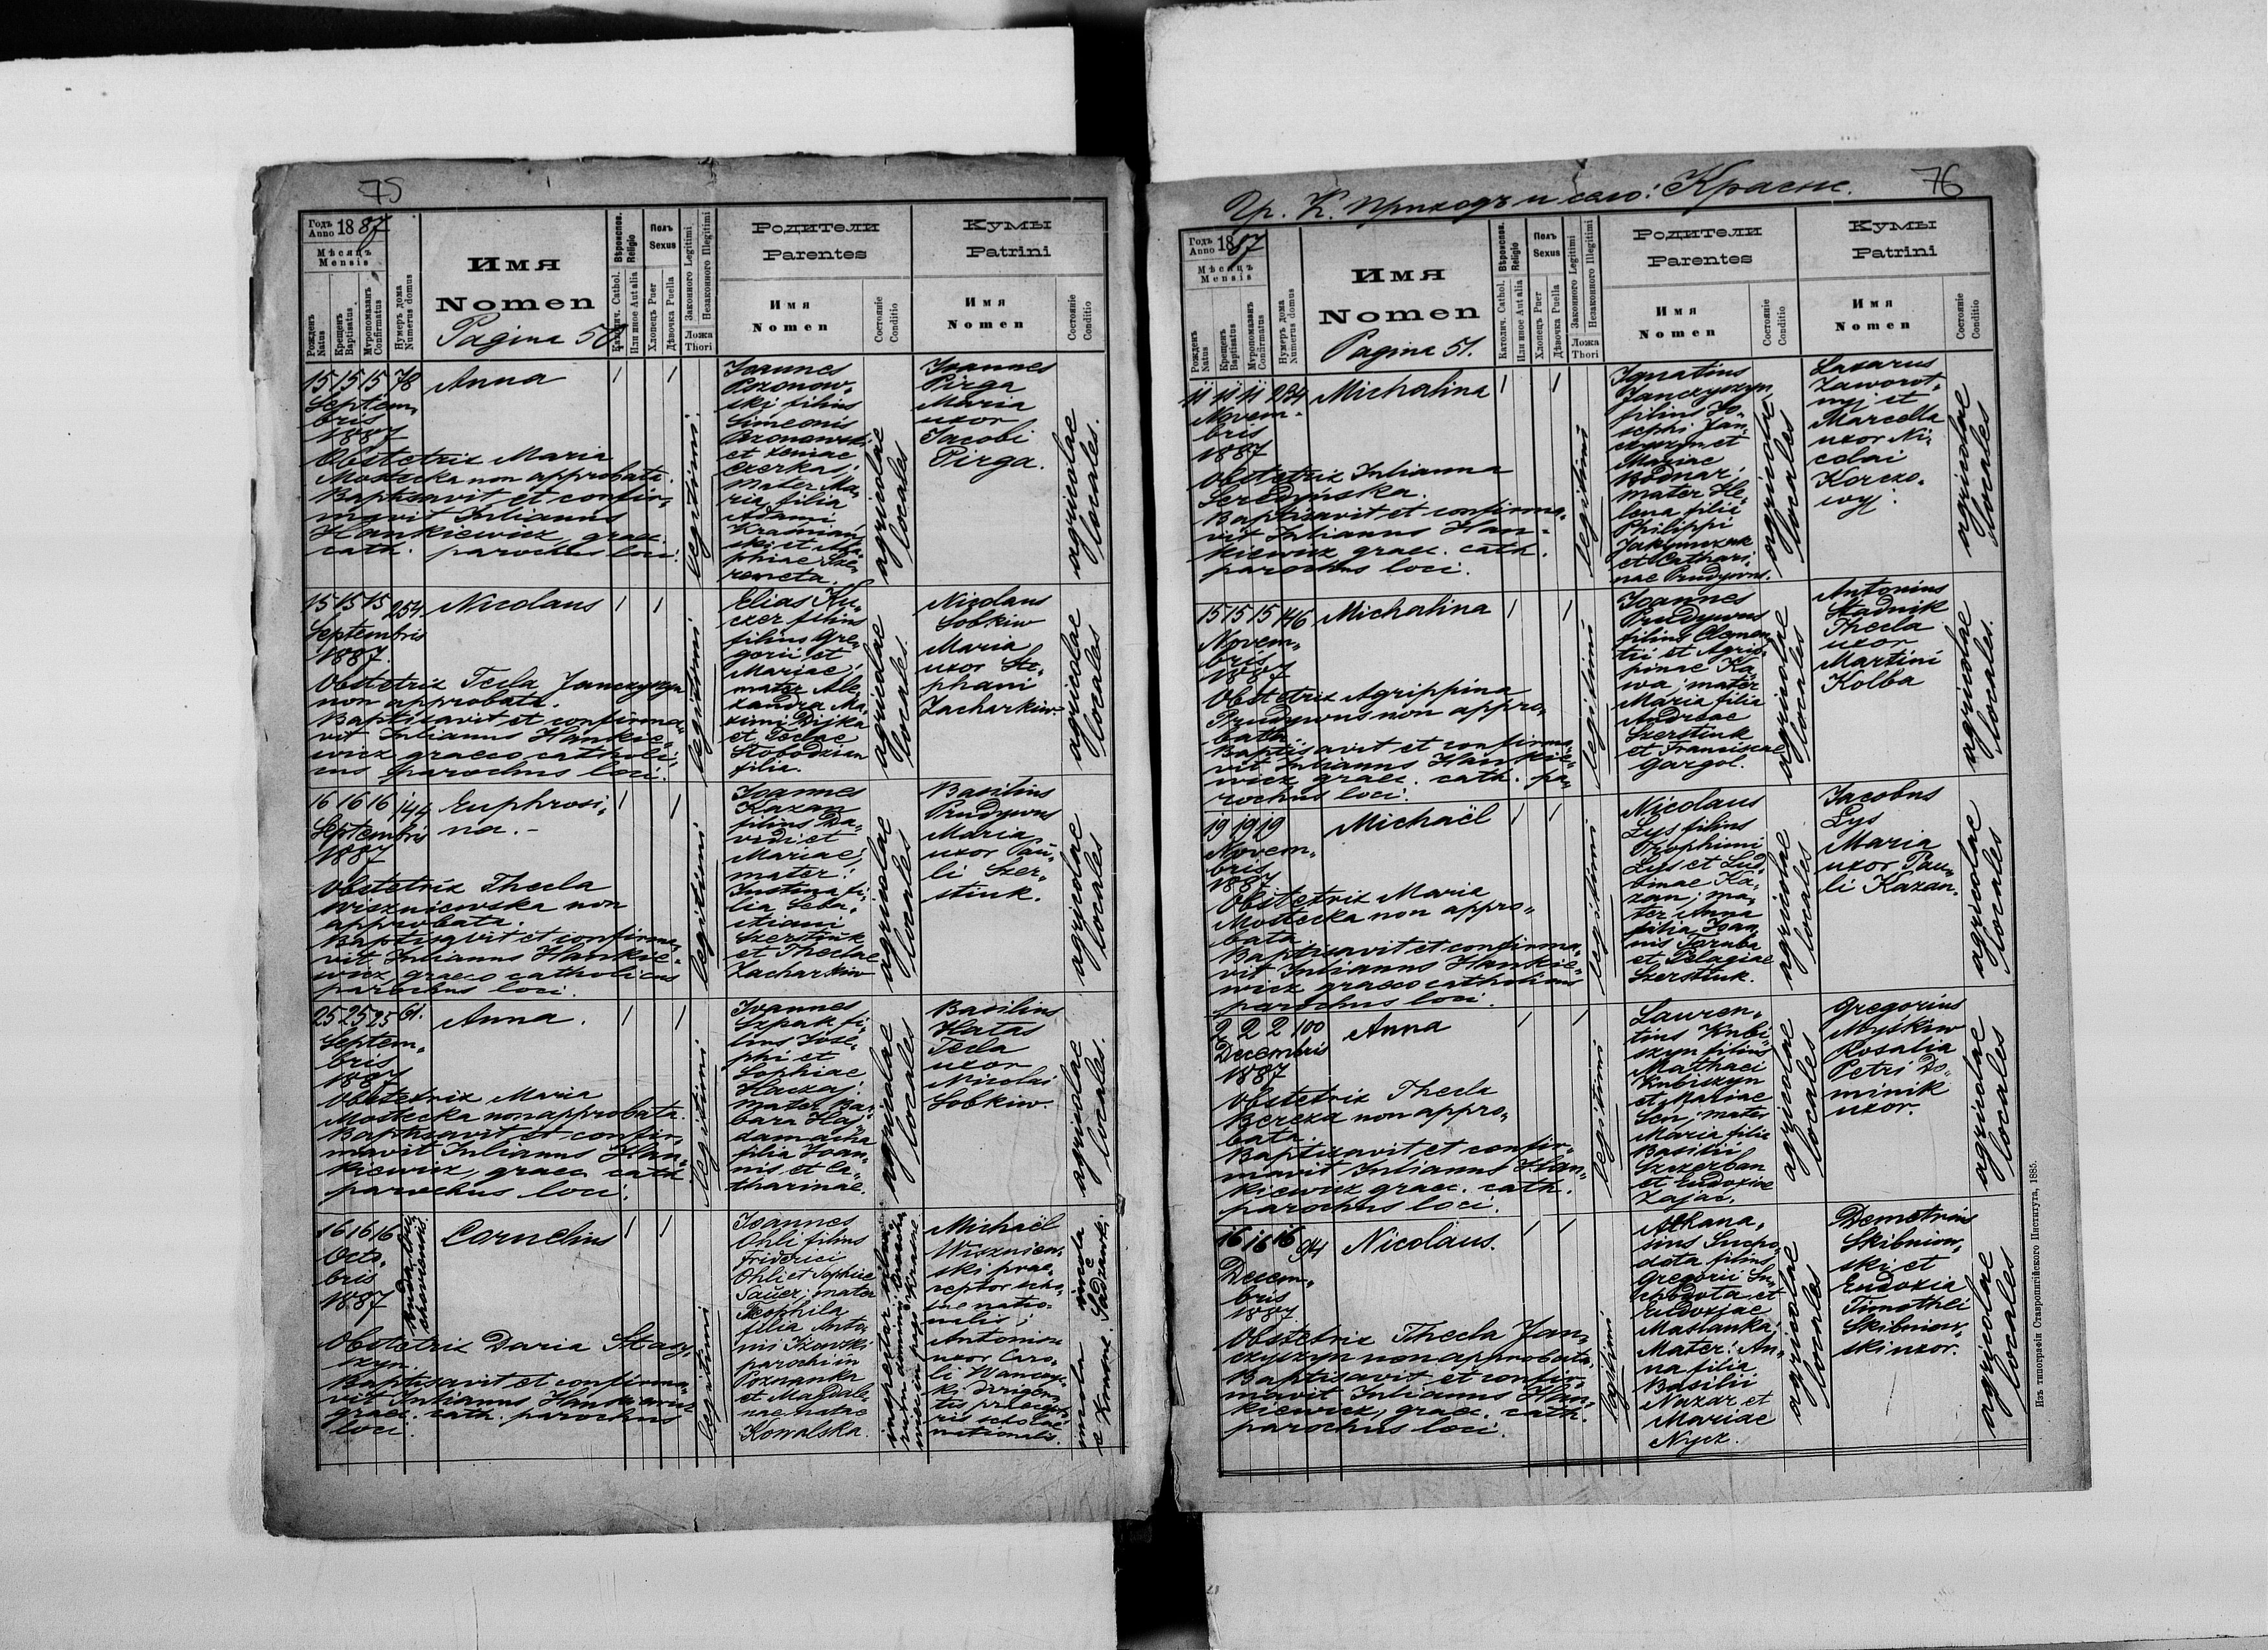 75
Годъ Anno 1887
Мѣсяцъ
Mensis
Рожденъ
Natus
Крещенъ
Baptisatus
Мѵропомазанъ
Confirmatus
Нумеръ дома
Numerus domus
Имя
Nomen
Pagina 50
Вѣроиспов.
Religio
Католич. Cathol.
Или иное Aut alia
Полъ
Sexus
Хлопецъ Puer
Дѣвочка Puella
Законного Legitimi
Незаконного Illegitimi
Ложа
Thori
Родители
Parentes
Имя
Nomen
Состояніе
Conditio
Кумы
Patrini
Имя
Nomen
Состояніе
Conditio
15 15 15 78 Anna 1 1
Septem„
bris
1887
Obstetrix Maria
Mostecka non approbata.
Baptisavit et confir„
mavit Julianus
Hankiewicz, graec.
cath. parochus loci.
legitimi.
Joannes
Pozonow„
ski filius
Simeonis
Pozonowski
et Xeniae
Czerkas;
mater Ma„
ria filia
Adami
et
agricolae
locales
Joannes
Pirga
Maria
uxor
Jacobi
Pirga.
agricolae
locales.
15 15 15 254 Nicolaus 1 1
Septembris
1887.
Obstetrix Tecla Janczyszyn
non approbata.
Baptisavit et confirma„
vit Julianus Hankie„
wicz graeco catholi„
cus parochus loci.
legitimi
Elias Ku„
czer filius
filius Gre„
gorii et
Mariae;
mater Ale„
xandra Ma„
ximi Dijka
et Teclae
Słobodzian
filia.
agricolae
locales.
Nicolaus
Sobkiw
Maria
uxor Ste„
phani
Zacharkiw.
agricolae
locales.
16 16 16 144 Euphrosi„ 1 1
na.-
Septembris
1887
Obstetrix Thecla
Wiszniewska non
approbata.
Baptisavit et confirma„
vit Julianus Hankie„
wicz graeco catholicus
parochus loci.
legitimi
Joannes
Kazan
filius Da„
vidi et
Mariae;
mater:
Justina fi„
lia Seba„
stiani
Szerstiuk
et Theclae
Zacharkiw
agricolae
locales
Basilius
Prudywus
Maria
uxor Pau„
li Szer„
stiuk.
agricolae
locales
25 25 25 61. Anna. 1 1
Septem„
bris
1887
Obstetrix Maria
Mostecka non approbata.
Baptisavit et confir„
mavit Julianus Han„
kiewicz, graec. cath
parochus loci.
legitimi
Joannes
Szpak fi„
lius Jose„
phi et
Sophiae
Haczaj;
mater Bar„
bara Haj„
damacha
filia Joan„
nis et Ca„
tharinae.
agricolae
locales
Basilius
Hatas
Tecla
uxor
Nicolai
Sobkiw.
agricolae
locales.
16 16 16 Cornelius 1 1
Octo„
bris
1887
Obstetrix Daria Stasy„
szyn.
Baptisavit et confirma„
vit Julianus Hankiewicz
graec. cath. parochus
loci.
legitimi
Joannes
Ohli filius
Friderici
Ohli et Sophiae
Sauer; mater
Teophila
filia Anto„
nis
parochi in
Poznanka
et Magdale„
nae natae
Kowalska.
inspector
Michaël
Wiszniew„
ski prae„
ceptor scho„
lae natio„
nalis;
Antonina
uxor Caro„
li
dirigen„
tis praecepto„
ris scholae
nationalis.
incola
e Krasne.
76
Гр. К. приходъ и село: Красне.
Годъ Anno 1887
Мѣсяцъ
Mensis
Рожденъ
Natus
Крещенъ
Baptisatus
Мѵропомазанъ
Confirmatus
Нумеръ дома
Numerus domus
Имя
Nomen
Pagina 51.
Вѣроиспов.
Religio
Католич. Cathol.
Или иное Aut alia
Полъ
Sexus
Хлопецъ Puer
Дѣвочка Puella
Законного Legitimi
Незаконного Illegitimi
Ложа
Thori
Родители
Parentes
Имя
Nomen
Состояніе
Conditio
Кумы
Patrini
Имя
Nomen
Состояніе
Conditio
11. 11. 11. 234 Michalina 1 1
Novem„
bris
1887
Obstetrix Julianna
Seredyńska.
Baptisavit et confirma„
vit Julianus Han„
kiewicz graec. cath.
parochus loci.
legitimi
Ignatius
Janczyszyn,
filius Jo„
sephi Jan„
czyszyn et
Mariae
Bodnar;
mater He„
lena filia
Philippi
Jakymczuk
et Cathari„
nae Prudywus.
agricolae
locales
Lazarus
Zaworot„
nyj et
Marcella
uxor Ni„
colai
Korczo„
wyj.
agricolae
locales
15 15 15 146 Michalina 1 1
Novem„
bris
1887
Obstetrix Agrippina
Prudywus non appro„
bata.
Baptisavit et confirma„
vit Julianus Hankie„
wicz graec. cath. pa„
rochus loci.
legitimi
Joannes
Prudywus
filius Clemen„
tii et Agrip„
pinae Ka„
wa; mater
Maria filia
Andreae
Szerstiuk
et Franciscae
Gargol.
agricolae
locales
Antonius
Stadnik
Thecla
uxor
Martini
Kolba
agricolae
locales.
19 19 19 Michaël 1 1
Novem„
bris
1887
Obstetrix Maria
Mostecka non appro„
bata
Baptisavit et confirma„
vit Julianus Hankie„
wicz graeco catholicus
parochus loci.
legitimi
Nicolaus
Łys filius
Trophimi
Łys et Lud„
binae Ka„
zan; ma„
ter Anna
filia Joan„
nis Taraba
et Pelagiae
Szerstiuk.
agricolae
locales
Jacobus
Łys
Maria
uxor Pau„
li Kazan.
agricolae
locales
2 2 2 100 Anna 1 1
Decembris
1887
Obstetrix Thecla
Bereza non appro„
bata.
Baptisavit et confir„
mavit Julianus Han„
kiewicz graec. cath.
parochus loci.
legitimi
Lauren„
tius Kubi„
szyn filius
Mathaei
Kubiszyn
et Mariae
Sen; mater
Maria filia
Basilii
Szczerban
et Eudoxiae
Zając.
agricolae
locales
Gregorius
Myśkiw
Rosalia
Petri Do„
minik
uxor.
agricolae
locales
16 16 16 94 Nicolaus. 1 1
Decem„
bris
1887
Obstetrix Thecla Jan„
czyszyn non approbata.
Baptisavit et confir„
mavit Julianus Han„
kiewicz, graec. cath.
parochus loci.
legitimi
Athana„
sius Sucho„
dota filius
Gregorii Su„
chodota et
Eudoxiae
Maslanka;
Mater: An„
na filia
Basilii
Nazar et
Mariae
Nycz.
agricolae
locales
Demetrius
Skibniow„
ski et
Eudoxia
Timothei
Skibniow„
ski uxor.
agricolae
locales
Изъ типографіи Ставропигійского Института, 1885.